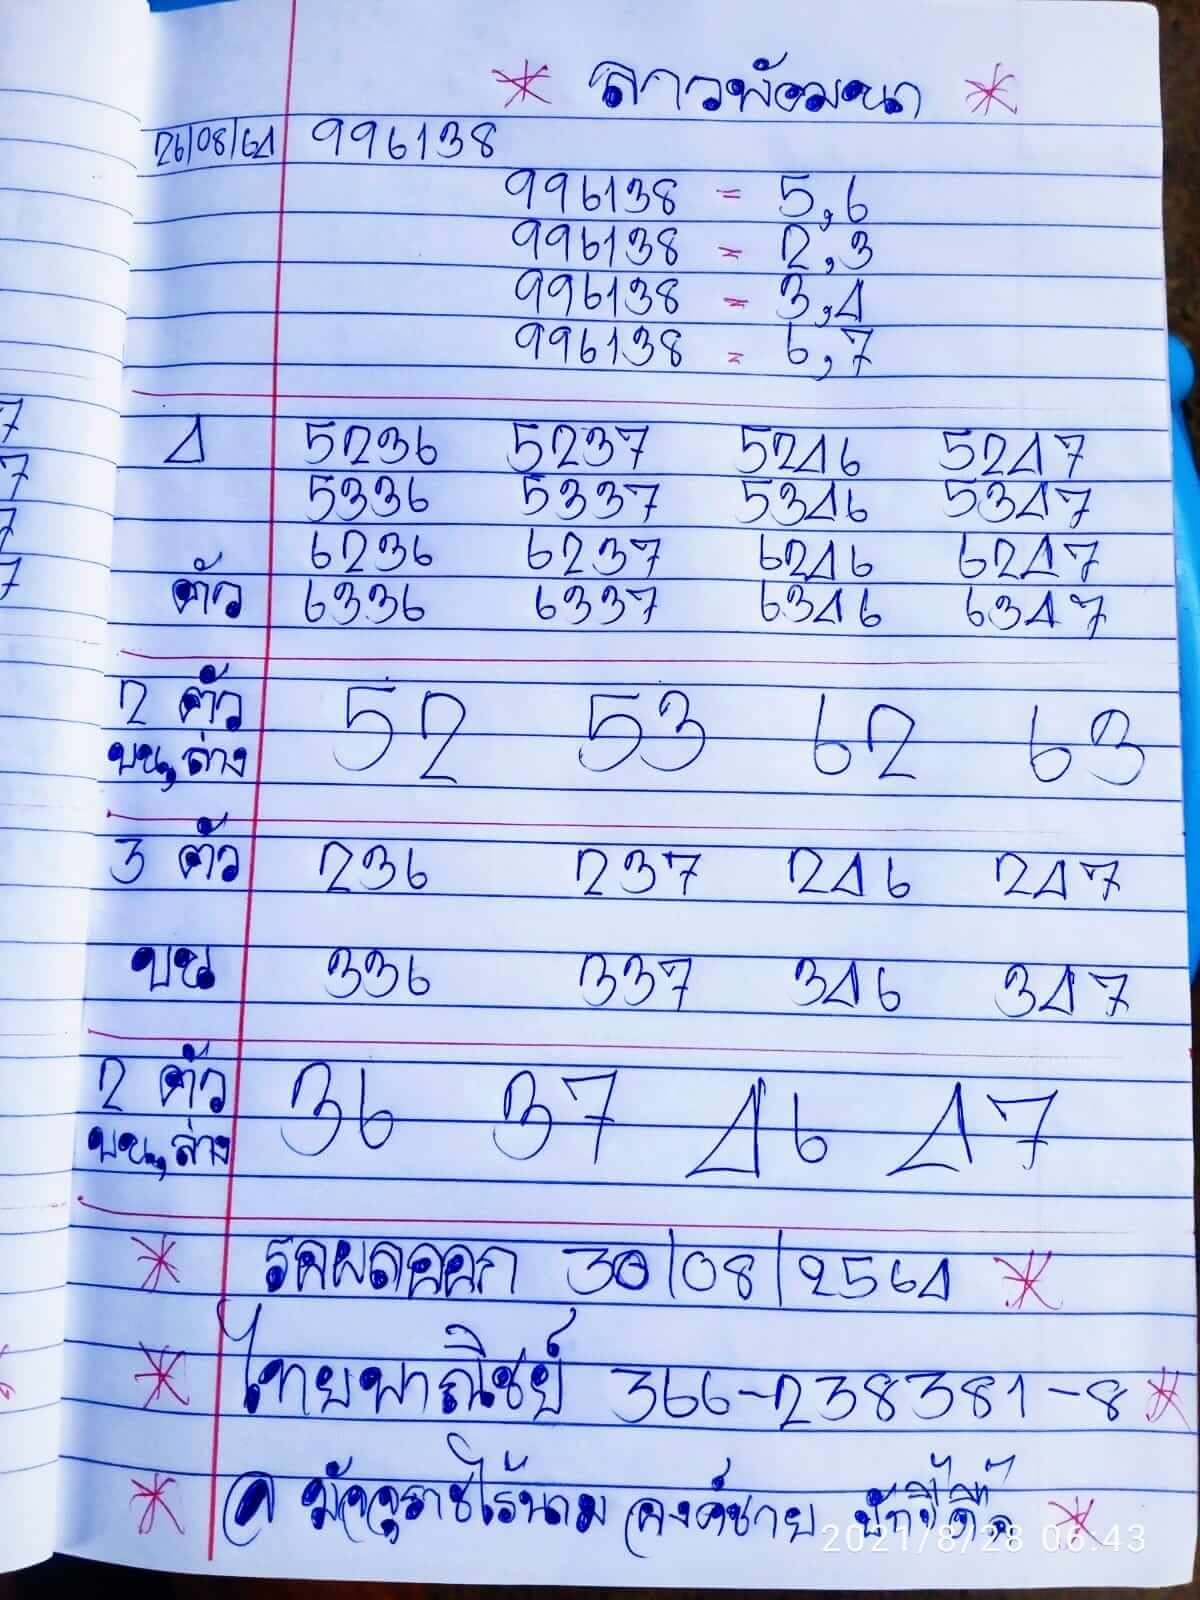 ลาวพัฒนา
26/08/64 996138
996138 = 5,6
996138 = 2,3
996138 = 3,4
996138 = 6,7
4 5236 5237 5246 5247
5336 5337 5346 5347
6236 6237 6246 6247
ตัว 6336 6337 6346 6347
2 ตัว บน,ล่าง 52 53 62 63
3 ตัว 236 237 246 247
บน 336 337 346 347
2 ตัว บน,ล่าง 36 37 46 47
รอผลออก 30/08/2564
ไทยพาณิชย์ 366-238381-8
มัจจุราชไร้นาม องค์ชาย
2021/8/28 06:43
7
7
7
7